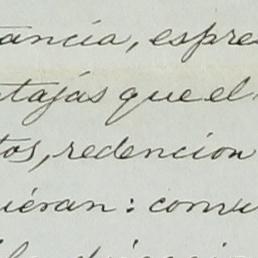 tancia, espre
ntajas que el
tos, redencion
uieran: comu